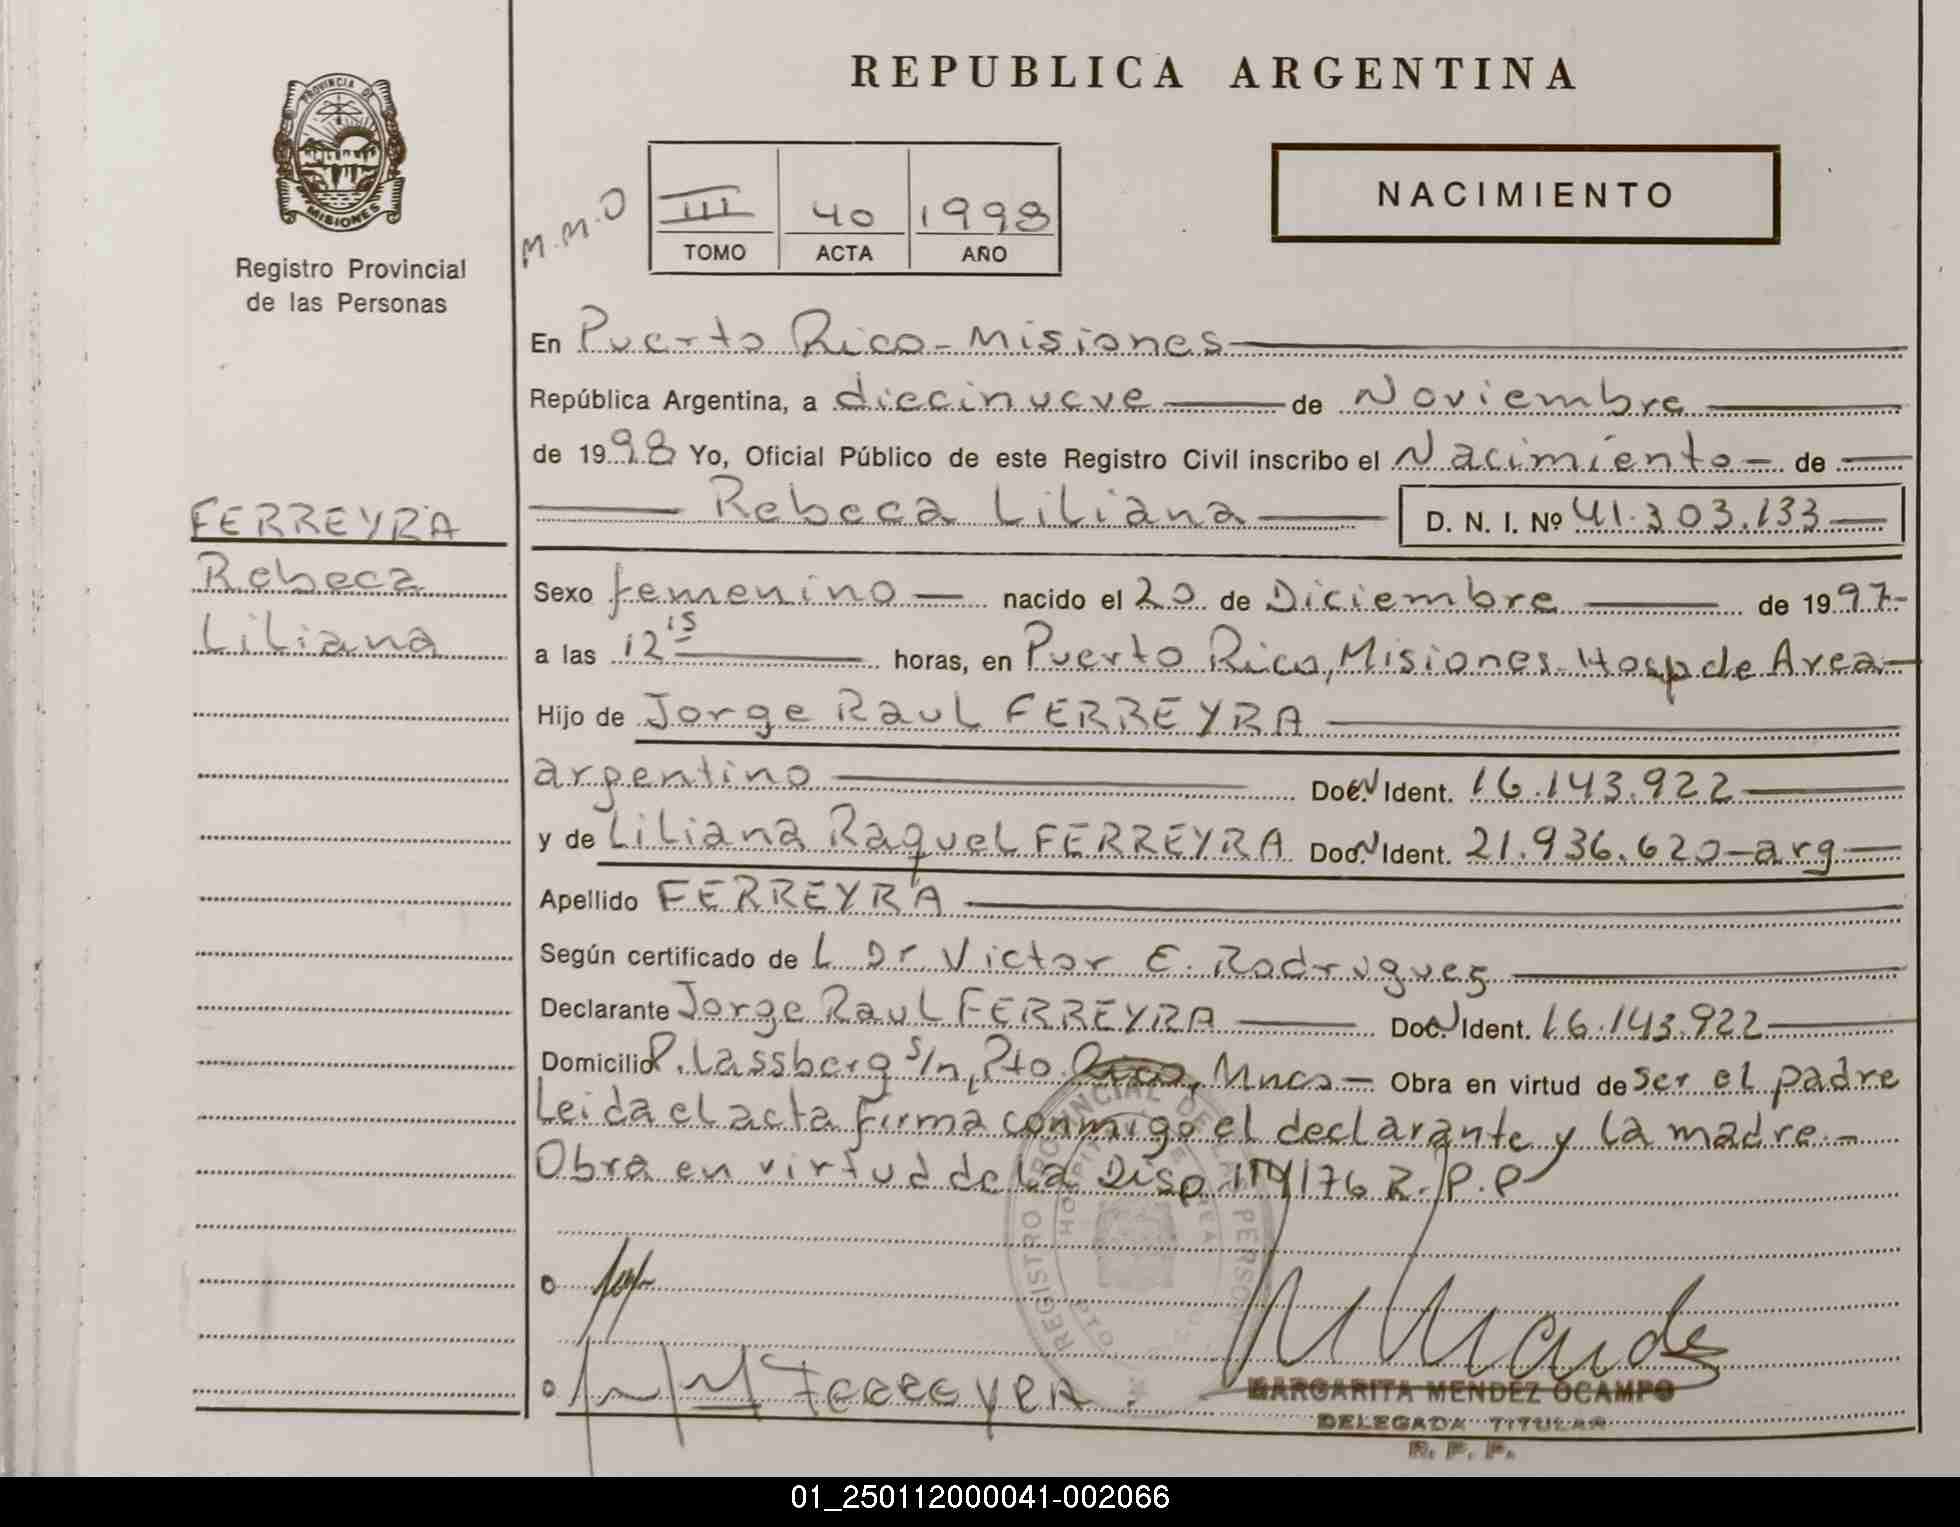 REPUBLICA ARGENTINA
PROVINCIA DE
MISIONES
Registro Provincial
de las Personas
M.M.O
III 40 1998
TOMO ACTA AÑO
NACIMIENTO
En Puerto Rico - Misiones
República Argentina, a diecinueve de Noviembre
de 1998 Yo, Oficial Público de este Registro Civil inscribo el Nacimiento - de
Rebeca Liliana D. N. I. Nº 41.303.133
FERREYRA
Rebeca
Liliana
Sexo femenino nacido el 20 de Diciembre de 1997-
a las 12 15 horas, en Puerto Rico, Misiones-Hosp de Area
Hijo de Jorge Raul FERREYRA
argentino Doc. Ident. 16.143.922
y de Liliana Raquel FERREYRA Doc. Ident. 21.936.620-arg
Apellido FERREYRA
Según certificado de L Dr. Victor E. Rodriguez
Declarante Jorge Raul FERREYRA Doc. Ident. 16.143.922
Domicilio P. Lassberg s/n, Pto Rico, Mnes - Obra en virtud de ser el padre
Leida el acta firma conmigo el declarante y la madre.-
Obra en virtud de la Disp /76 R.P.P
REGISTRO PROVINCIAL DE LAS PERSONAS
HOSPITAL DE AREA
FERREYRA
MARGARITA MENDEZ OCAMPO
DELEGADA TITULAR
R. P. P.
01_250112000041-002066